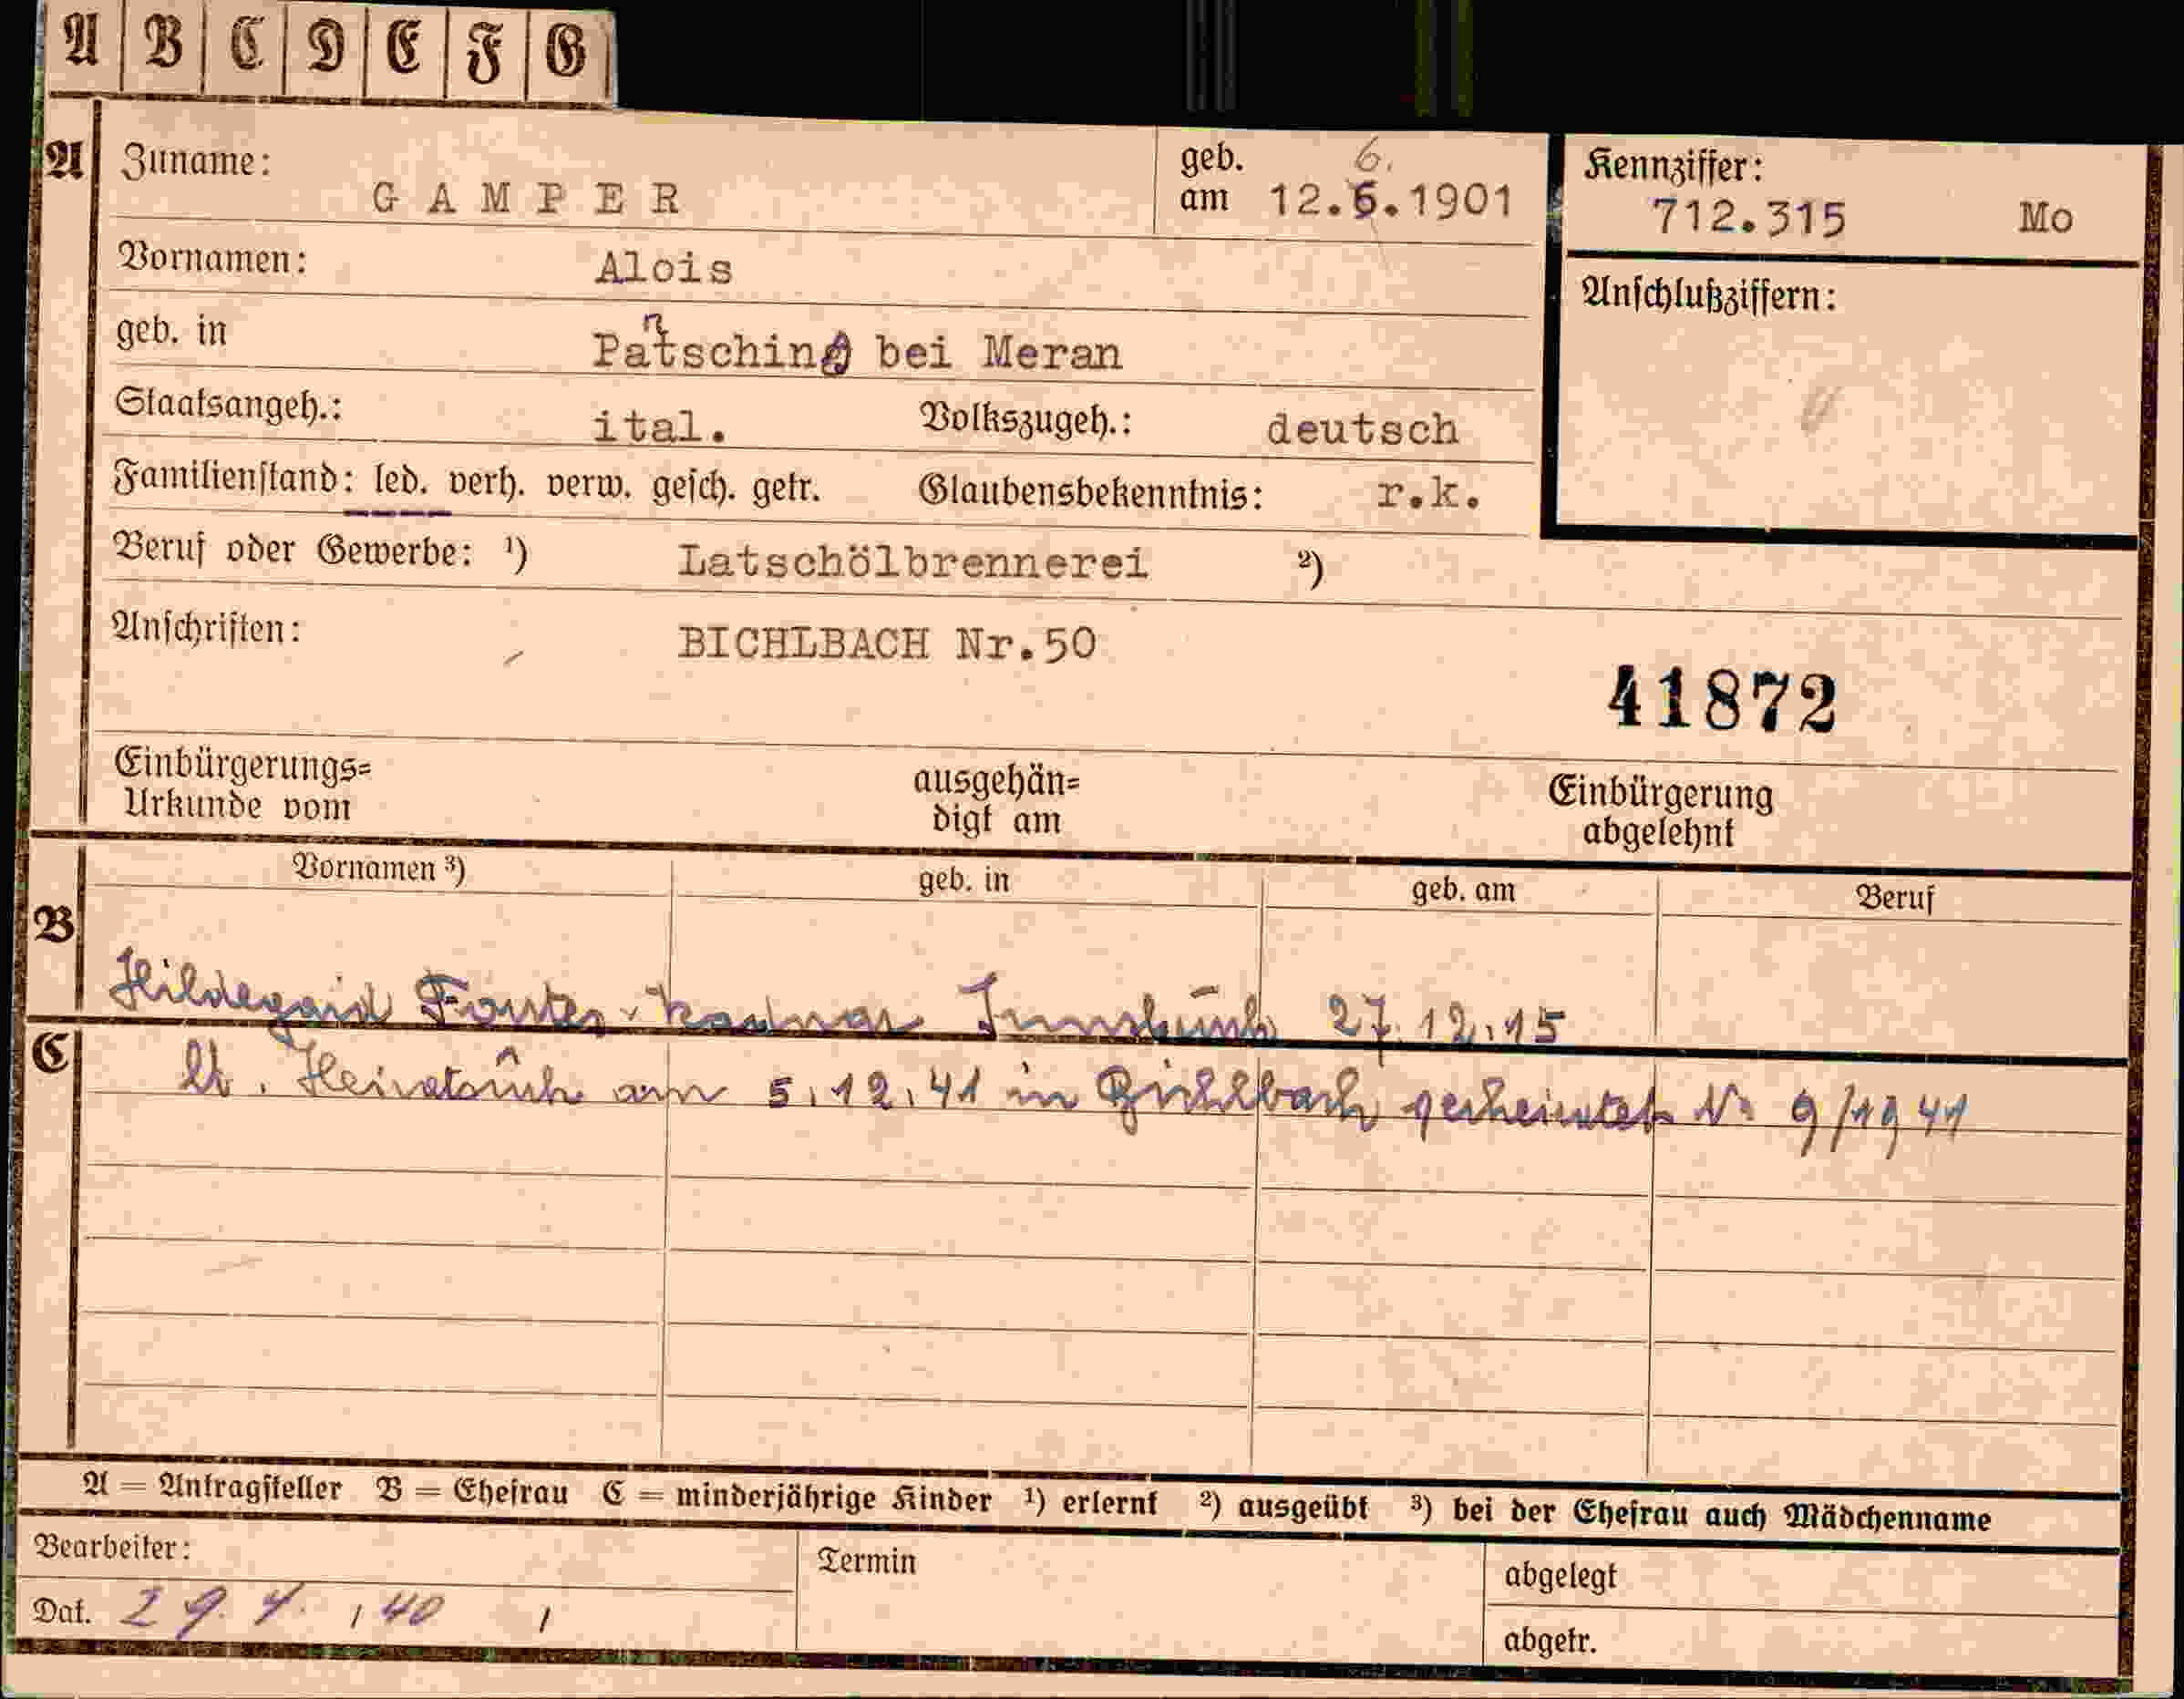 A B C D E F G
A Zuname: GAMPER geb. am 12.6.1901 6.
Kennziffer: 712.315 Mo
Vornamen: Alois
Anschlußziffern:
geb. in Partschins bei Meran
Staatsangeh.: ital. Volkszugeh.: deutsch
Familienstand: led. verh. verw. gesch. getr. Glaubensbekenntnis: r.k.
Beruf oder Gewerbe: ¹) Latschölbrennerei ²)
Anschriften: BICHLBACH Nr.50
41872
Einbürgerungs= Urkunde vom ausgehän= digt am Einbürgerung abgelehnt
Vornamen ³) geb. in geb. am Beruf
B Hildegard Innsbruck 27.12.15
C lt. am 5.12.41 in Bichlbach geheiratet No 9/1941
A = Antragsteller B = Ehefrau C = minderjährige Kinder ¹) erlernt ²) ausgeübt ³) bei der Ehefrau auch Mädchenname
Bearbeiter: Termin abgelegt
Dat. 29.4.40 abgetr.